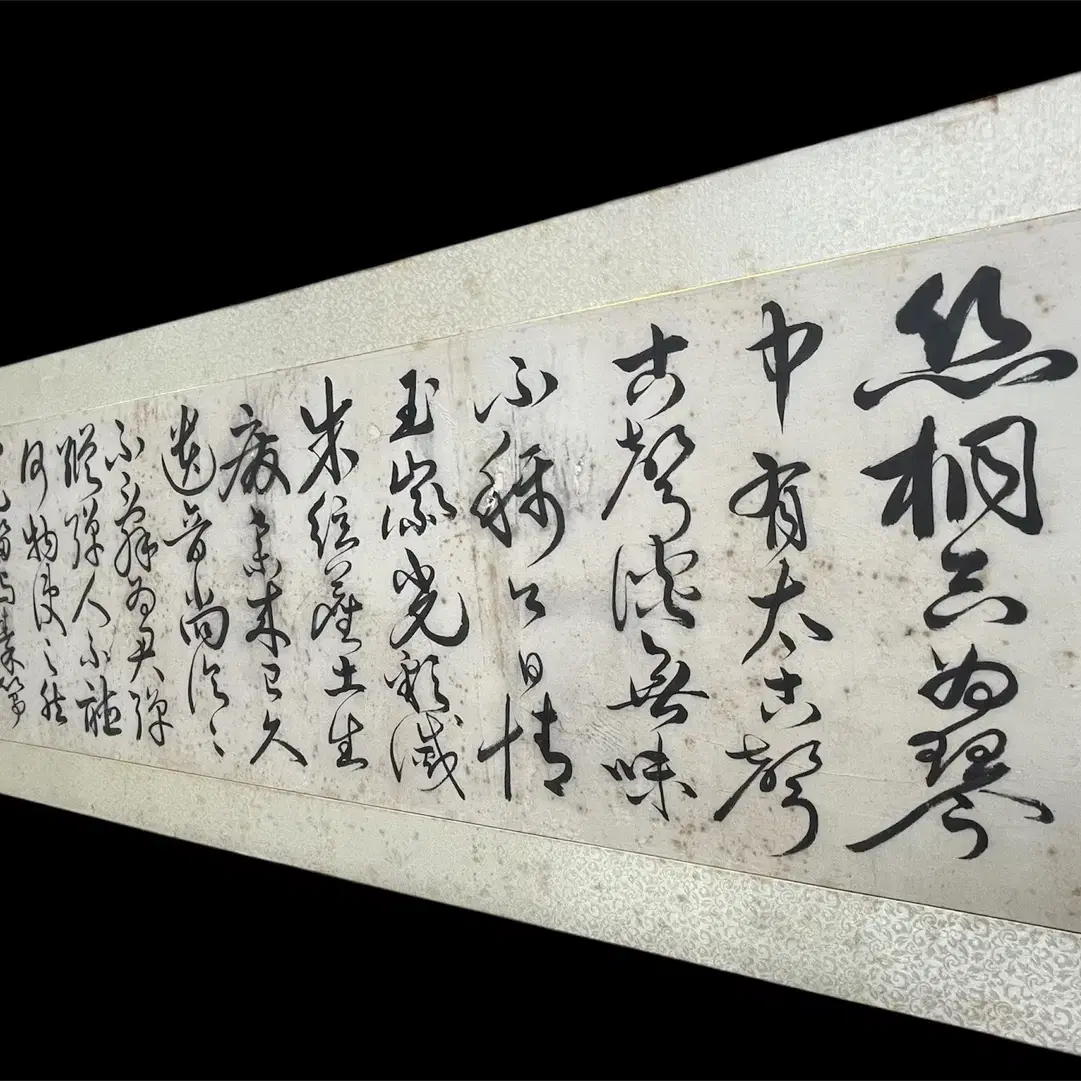 絲桐合為琴
中有太古聲
古聲淡無味
不稱今日情
玉徽光彩滅
朱絃塵土生
廢棄來已久
遺音尚泠〻
不辭為君彈
縱彈人不聽
何物使之然
羌笛與秦箏